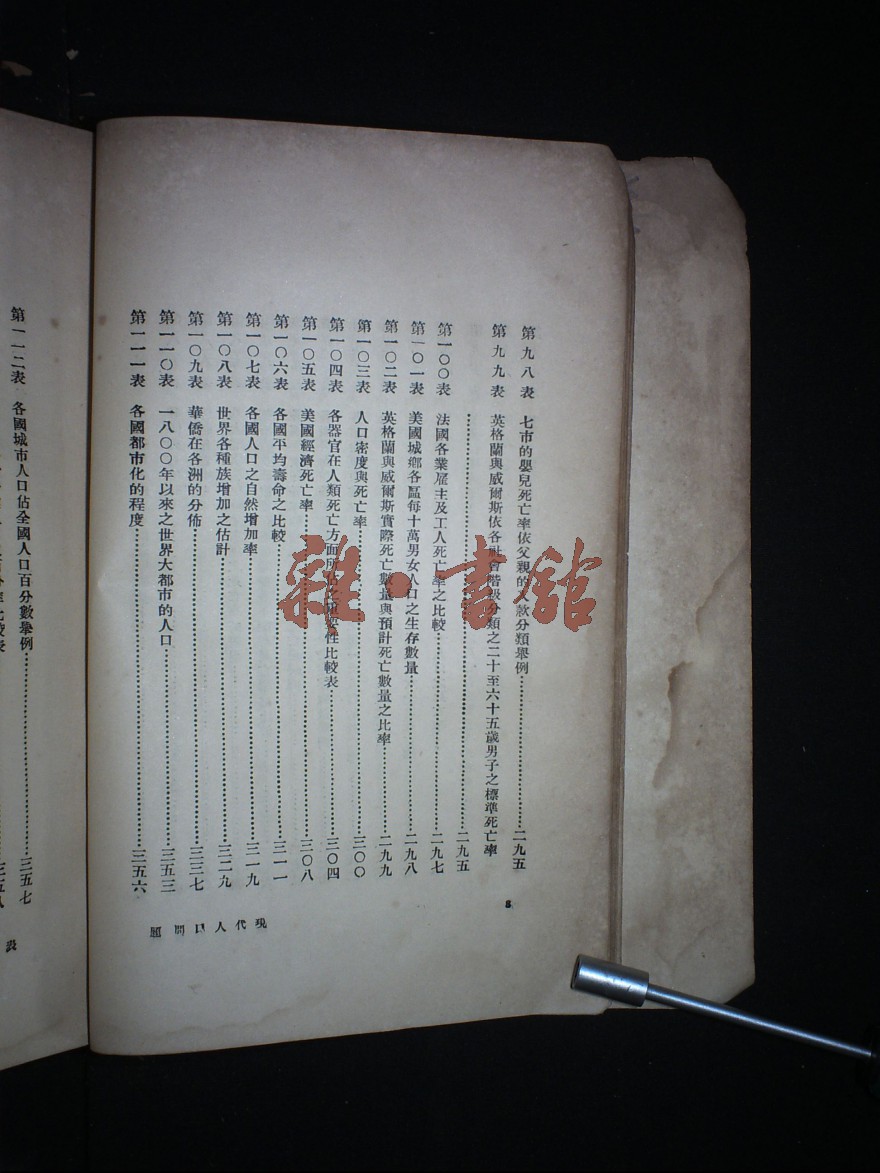 第九八表 七市的嬰兒死亡率依父親的入款分類舉例……二九五
第九九表 英格蘭與威爾斯依各社會階級分類之二十至六十五歲男子之標準死亡率
……二九五
第一〇〇表 法國各業雇主及工人死亡率之比較……二九七
第一〇一表 美國城鄉各區每十萬男女人口之生存數量……二九八
第一〇二表 英格蘭與威爾斯實際死亡數量與預計死亡數量之比率……二九九
第一〇三表 人口密度與死亡率……三〇〇
第一〇四表 各器官在人類死亡方面所佔之重要性比較表……三〇四
第一〇五表 美國經濟死亡率……三〇八
第一〇六表 各國平均壽命之比較……三一一
第一〇七表 各國人口之自然增加率……三一九
第一〇八表 世界各種族增加之估計……三二九
第一〇九表 華僑在各洲的分佈……三三七
第一一〇表 一八〇〇年以來之世界大都市的人口……三五三
第一一一表 各國都市化的程度……三五六
現代人口問題
8
第一一二表 各國城市人口佔全國人口百分數舉例……三五七
雜·書館